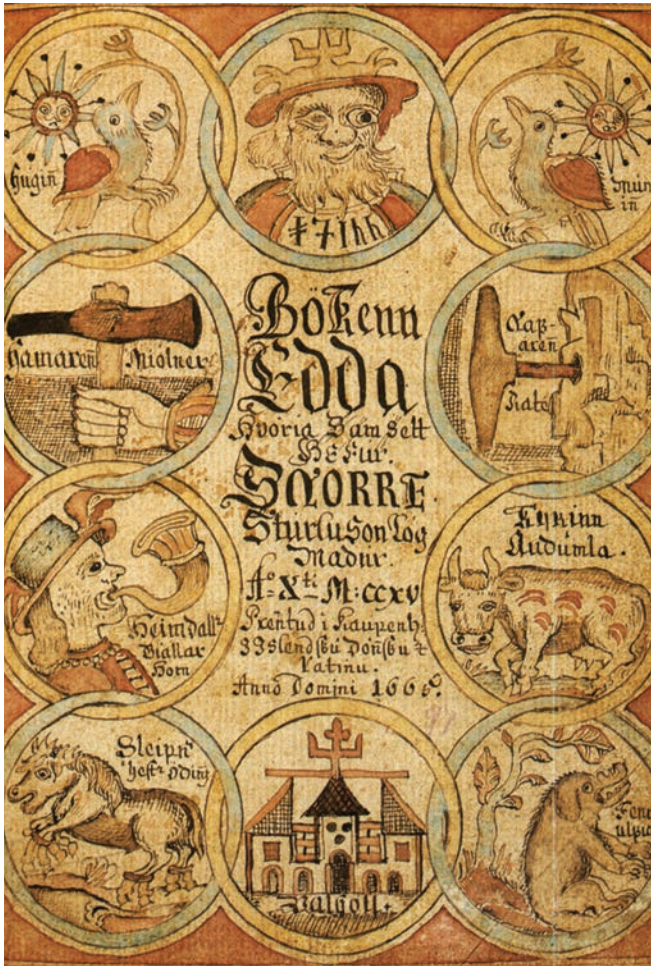 Hugiñ
Mun
iñ
Hamareñ Miölner
Bökenn
Edda
Hvoria Samsett
Hefur.
SNORRE
Sturluson Lög
Madur.
Aº Xti M:ccxv
Prentud i Kaupenh:
Islendsku Donsku &
Latinu.
Anno Domini 1665.
Naf-
areñ
Rate
Heimdallr
Giallar
Horn
Kyrinn
Audumla.
Sleipnr
hestr Odins
Valholl.